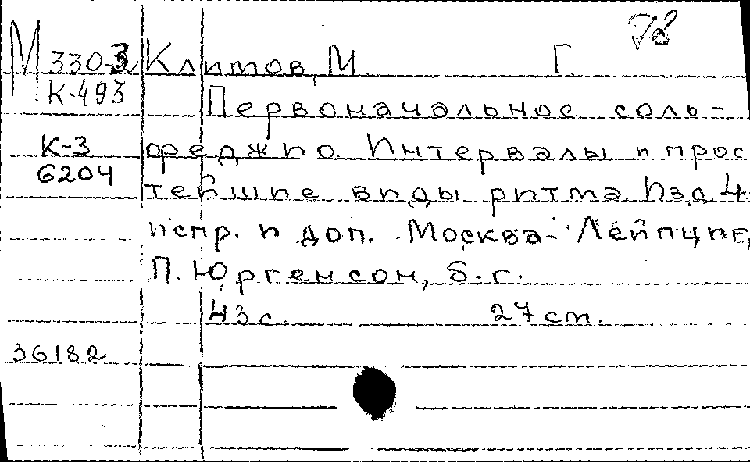 М 330-3 Климов, М. Г.
К-493
Первоначальное соль-
К-3 феджио. Интервалы и прос
6204 тейшие виды ритма. Изд. 4
испр. и доп. Москва-Лейпциг,
П. Юргенсон, б. г.
43 с. 27 см.
36182